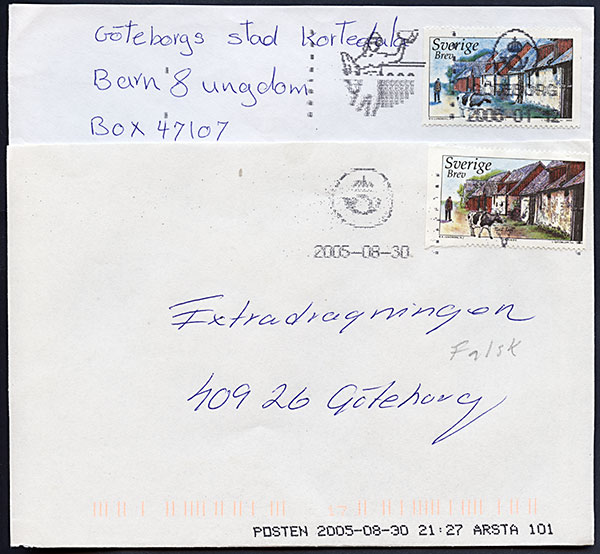 Göteborgs stad Kortedala
Barn & ungdom
Box 47107
Sverige
Brev
GÖTEBORG
2005-01-12
Sverige
Brev
2005-08-30
Extradragningen
Falsk
409 26 Göteborg
POSTEN 2005-08-30 21:27 ARSTA 101